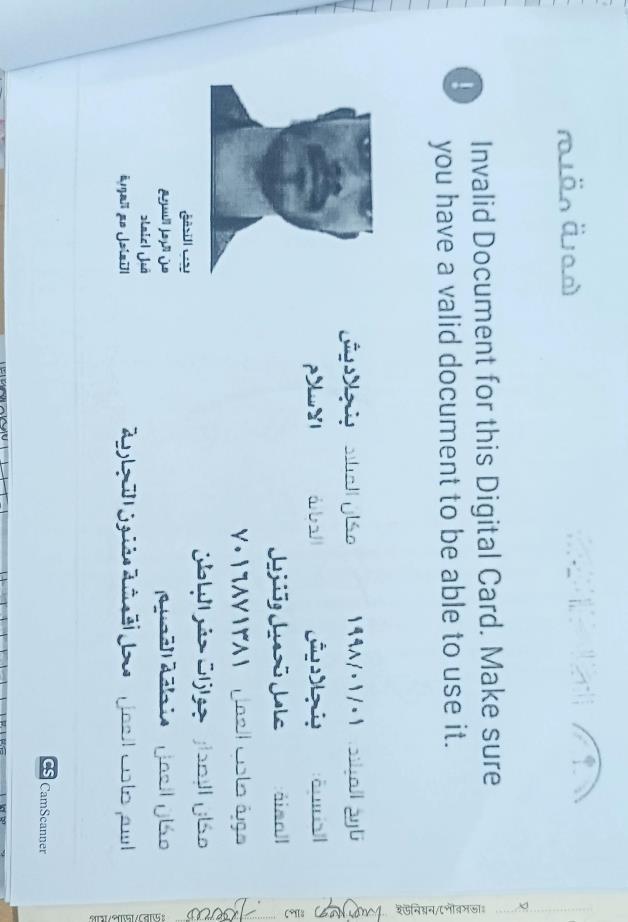 هوية مقيم
Invalid Document for this Digital Card. Make sure
you have a valid document to be able to use it.
تاريخ الميلاد: ١٩٩٨/٠١/٠١ مكان الميلاد بنجلاديش
الجنسية: بنجلاديش الديانة الاسلام
المهنة: عامل تحميل وتنزيل
هوية صاحب العمل ٧٠١٦٨٧١٣٨١
مكان الإصدار جوازات حفر الباطن
مكان العمل منطقة القصيم
اسم صاحب العمل محل أقمشة التجارية
يجب التحقق
من الرمز السريع
قبل اعتماد
التعامل مع الهوية
CS CamScanner
গ্রাম/পাড়া/রোডঃ পোঃ ইউনিয়ন/পৌরসভাঃ